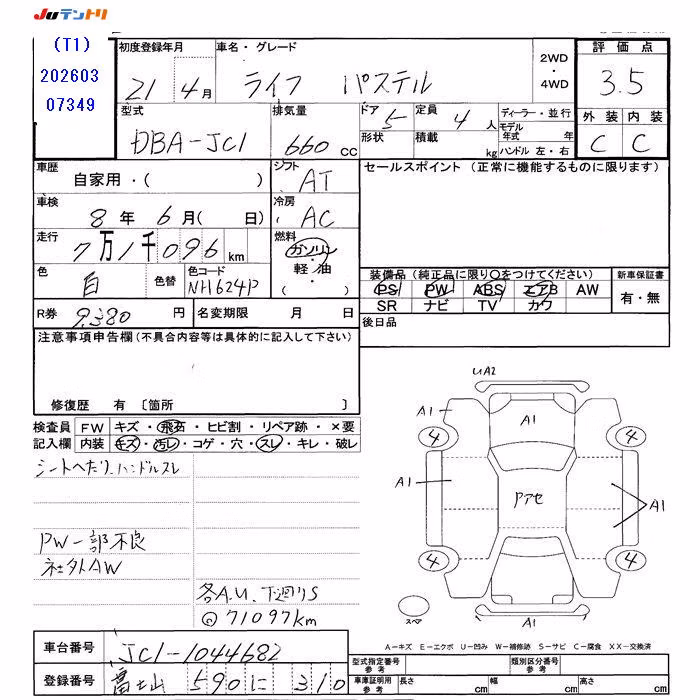 Juテントリ
(T1)
202603
07349
初度登録年月
21年4月
車名・グレード
ライフ パステル
2WD
・
4WD
評価点
3.5
外装 内装
C C
型式
DBA-JC1
排気量
660cc
ドア 5
形状
定員 4人
積載 kg
ディーラー・並行
モデル年式 年
ハンドル 左・右
車歴
自家用・( )
シフト
AT
セールスポイント (正常に機能するものに限ります)
車検
8年6月( 日)
冷房
AC
走行
7万1千096km
燃料
ガソリン
・
軽油
・
( )
色
白
色替
色コード
NH624P
装備品(純正品に限り○をつけてください)
PS PW ABS エアB AW
SR ナビ TV カワ
新車保証書
有・無
R券 9,380円
名変期限 月 日
後日品
注意事項申告欄(不具合内容等は具体的に記入して下さい)
修復歴 有 〔箇所 〕
検査員記入欄
FW キズ・飛石・ヒビ割・リペア跡・×要
内装 キズ・汚レ・コゲ・穴・スレ・キレ・破レ
シートヘたり、ハンドルスレ
PW一部不良
社外AW
各A.U、下廻りS
◎71097km
UA2
A1
A1
4
4
A1
Pアセ
A1
4
4
スペア
A1
A-キズ E-エクボ U-凹み W-補修跡 S-サビ C-腐食 XX-交換済
車台番号 JC1-1044682
登録番号 富士山 590 に 310
型式指定番号 参考
類別区分番号 参考
車庫証明用 参考
長さ cm
幅 cm
高さ cm